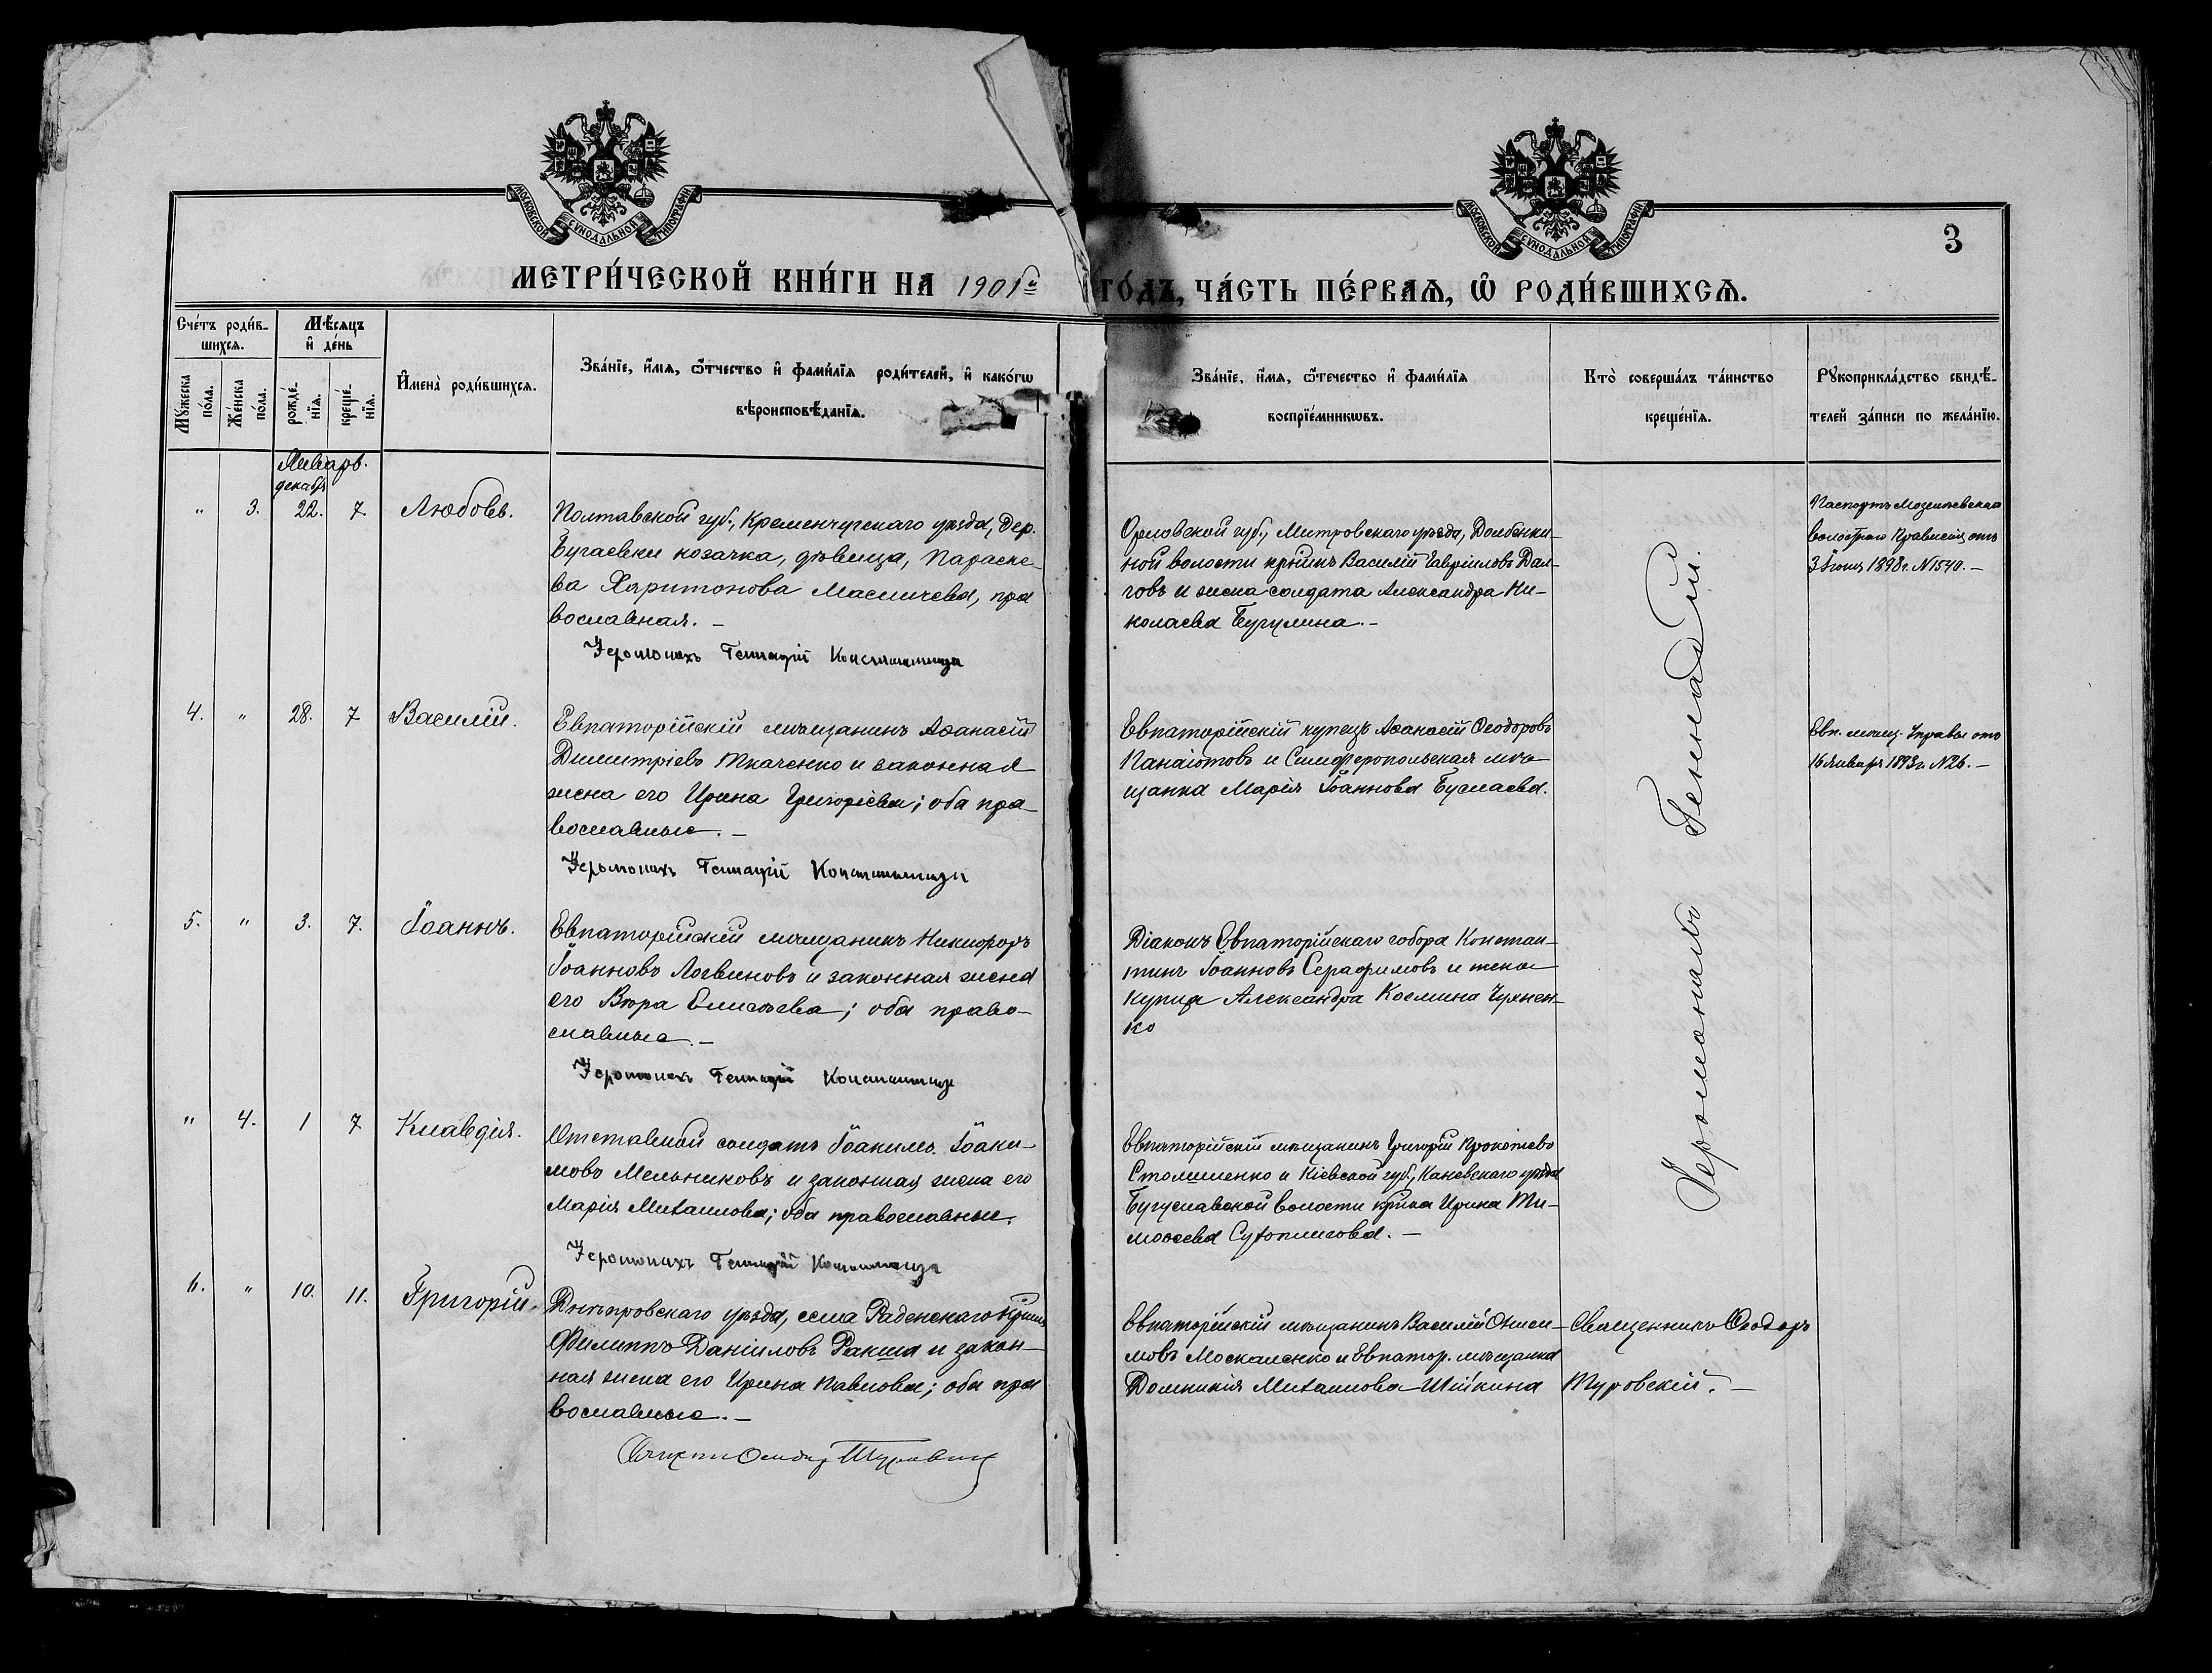 МОСКОВСКОЙ СѴНОДАЛЬНОЙ ТИПОГРАФІИ
МОСКОВСКОЙ СѴНОДАЛЬНОЙ ТИПОГРАФІИ
3
МЕТРИ́ЧЕСКОЙ КНИ́ГИ НА 1901й ГО́ДЪ, ЧА́СТЬ ПЕ́РВАѦ, Ѡ҆ РОДИ́ВШИХСѦ.
Сче́тъ роди́в-
шихсѧ.
Мѣ́сѧцъ
и҆ де́нь
Мꙋ́жеска
по́ла.
Же́нска
по́ла.
рожде́-
нїѧ.
креще́-
нїѧ.
И҆мена̀ роди́вшихсѧ.
Зва́нїе, и҆́мѧ, ѻ҆́тчество и҆ фами́лїѧ роди́телей, и҆ како́гѡ
вѣроисповѣ́данїѧ.
Зва́нїе, и҆́мѧ, ѻ҆те́чество и҆ фами́лїѧ
воспрїе́мникѡвъ.
Кто̀ соверша́лъ та́инство
креще́нїѧ.
Рꙋкоприкла́дство свидѣ́-
телей за́писи по жела́нїю.
Январь.
декабр
" 3. 22. 7 Любовь.
Полтавской губ., Кременчугскаго уѣзда, дер.
Бугаевки козачка, дѣвица, Параске-
ва Харитонова Масличева, пра
вославная. –
Іеромонахъ Геннадій
Орловской губ., Митровскаго уѣзда, Долбенки-
ной волости крѣнъ Василій Гавріиловъ Дал-
говъ и жена солдата Александра Ни-
колаева Бугулина. –
Паспортъ
волостного Правленія отъ
3 Іюня 1898 г. N 1540. –
4. " 28. 7 Василій.
Евпаторійскій мѣщанинъ Аѳанасій
Димитріевъ Ткаченко и законная
жена его Ирина Григоріева; оба пра-
вославные. –
Іеромонахъ Геннадій
Евпаторійскій купецъ Аѳанасій Ѳеодоровъ
Панаіотовъ и Симферопольская мѣ-
щанка Марія Іоаннова Буслаева.
Евп. мѣщ. Управы отъ
16 Января 1893 г. N 26. –
5. " 3. 7. Іоаннъ.
Евпаторійскій мѣщанинъ Никифоръ
Іоанновъ Логвиновъ и законная жена
его Вѣра Елисѣева; оба право-
славные. –
Іеромонахъ Геннадій
Діаконъ Евпаторійскаго собора Констан-
тинъ Іоанновъ Серафимовъ и жена
купца Александра Космина Чухнен-
ко
" 4. 1 7 Клавдія.
Отставной солдатъ Іоакимъ Іоаки-
мовъ Мельниковъ и законная жена его
Марія Михаилова; оба православные.
Іеромонахъ Геннадій
Евпаторійскій мѣщанинъ Григорій Прокопіевъ
Столишенко и Кіевской губ., Каневскаго уѣзда
Бугуславской волости крѣнка Ирина Ти-
моѳеева. –
Іеромонахъ Геннадій.
6. " 10. 11. Григорій.
Днѣпровскаго уѣзда, села Раденскаго крѣнъ
Филиппъ Даніиловъ Ракша и закон-
ная жена его Ирина Павлова; оба пра
вославные. –
Ѳеодоръ Туровскій
Евпаторійскій мѣщанинъ Василій Ониси-
мовъ Москаленко и Евпатор. мѣщанка
Домникія Михаилова Шійкина
Священникъ Ѳеодоръ
Туровскій. –